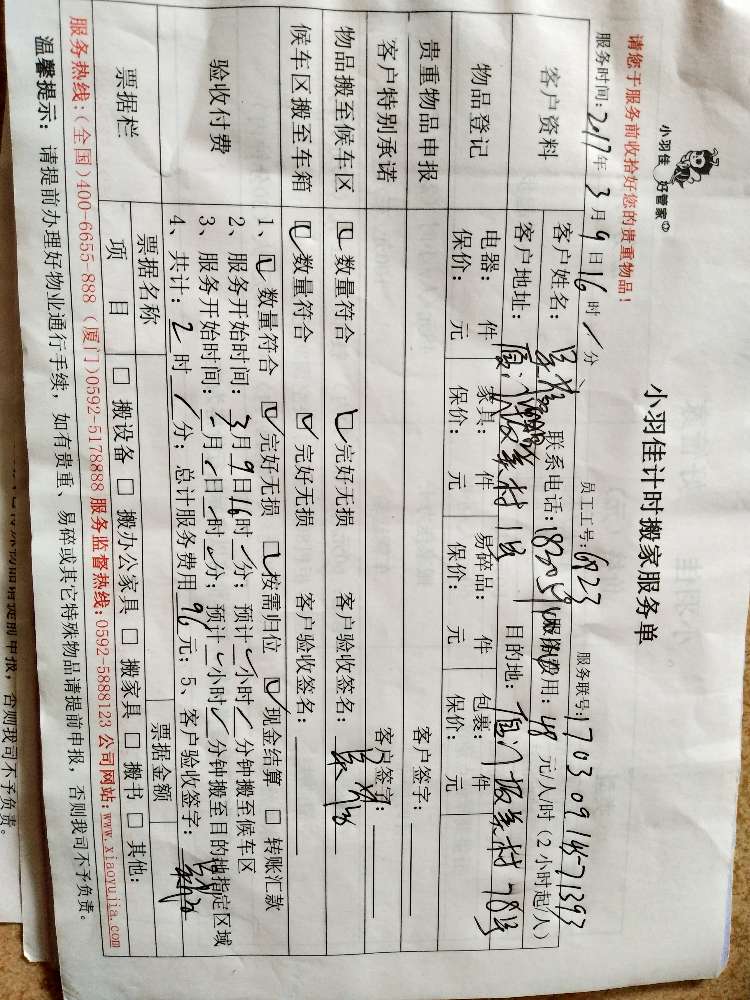 小羽佳 好管家
小羽佳计时搬家服务单
请您于服务前收拾好您的贵重物品！
员工工号：6923 服务联号：17030914571393
服务时间：2017年3月9日16时/分
客户资料
客户姓名： 联系电话： 服务费用：48元/人/时(2小时起/人)
客户地址：厦门 坂美村 目的地：厦门坂美村78号
物品登记
电器： 件 家具： 件 易碎品： 件 包裹： 件
保价： 元 保价： 元 保价： 元 保价： 元
贵重物品申报 客户签字：
客户特别承诺 客户签字：
物品搬至候车区 数量符合 完好无损 客户验收签名：
候车区搬至车箱 数量符合 完好无损 客户验收签名：
验收付费
1、数量符合 完好无损 按需归位 现金结算 转账汇款
2、服务开始时间：3月9日16时/分；预计/小时/分钟搬至候车区
3、服务开始时间：/月/日/时/分；预计/小时/分钟搬至目的地指定区域
4、共计：2时/分；总计服务费用96元；5、客户验收签字：
票据栏 票据名称 票据金额
项目 搬设备 搬办公家具 搬家具 搬书 其他：
服务热线：(全国)400-6655-888 (厦门)0592-5178888 服务监督热线：0592-5888123 公司网站：www.xiaoyujia.com
温馨提示：请提前办理好物业通行手续，如有贵重、易碎或其它特殊物品请提前申报，否则我司不予负责。
特殊物品请提前申报，否则我司不予负责。